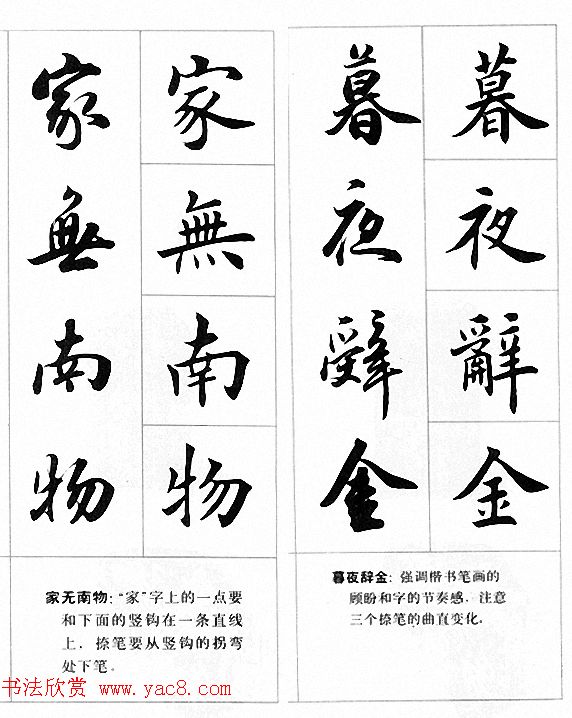 暮夜辭金
暮夜辤金
暮夜辞金：强调楷书笔画的
顾盼和字的节奏感，注意
三个捺笔的曲直变化。
家無南物
家無南物
家无南物：“家”字上的一点要
和下面的竖钩在一条直线
上，捺笔要从竖钩的拐弯
处下笔。
书法欣赏 www.yac8.com